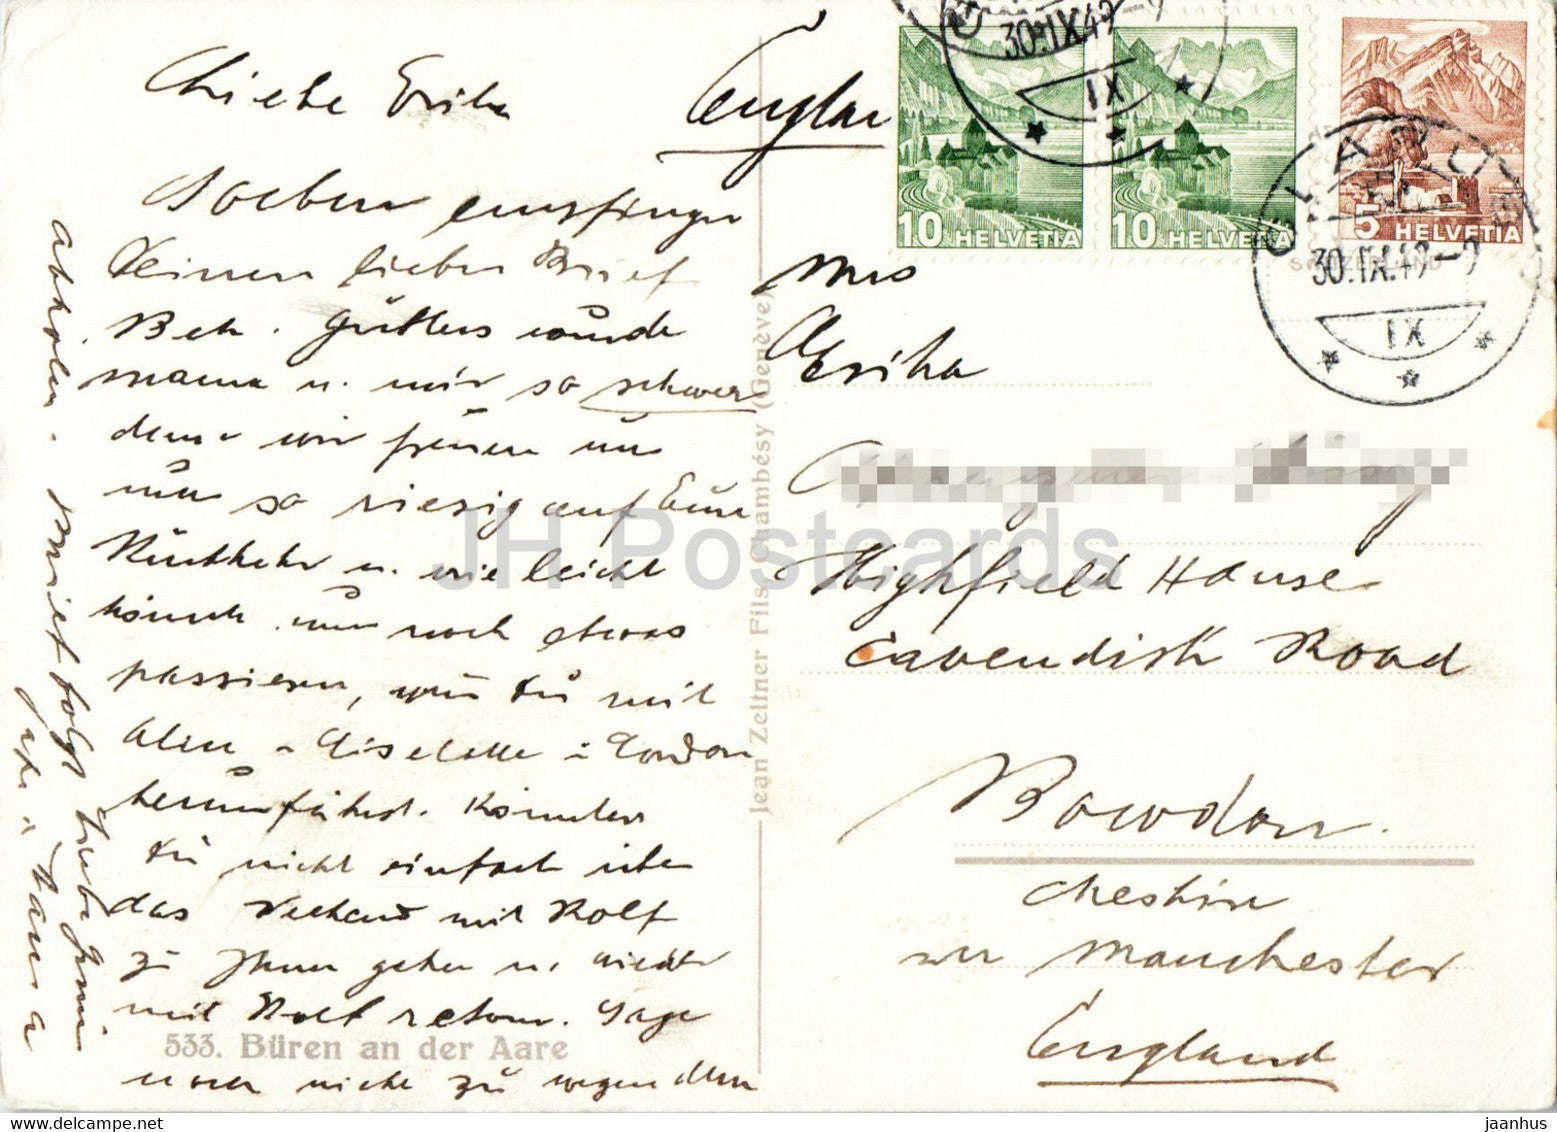 Liebe Erika
Soeben empfingen
Deinen lieben Brief
Betr. Güttlers wurde
mama u. mir so schwer
denn wir freuen uns
nur so riesig auf Eure
Rückkehr u. wie leicht
könnte nun noch etwas
passieren, wenn Du mit
Alen Liselotte u Gordon
herumfährst. Könntest
Du nicht einfach über
das Weekend mit Rolf
zu Ihnen gehen u. wieder
mit Rolf retour. Sage
aber nicht zu wegen dem
abholen. Brief folgt Liebe
Mama
England
Mrs
Erika
Highfield House
Cavendish Road
Bowdon.
Cheshire
nr Manchester
England
533. Büren an der Aare
Jean Zeltner Fils, Chambésy (Genève)
10 HELVETIA
10 HELVETIA
5 HELVETIA
30.IX.49-9
IX
GLARUS
30.IX.49-9
IX
SWITZERLAND
JH Postcards
jaanhus